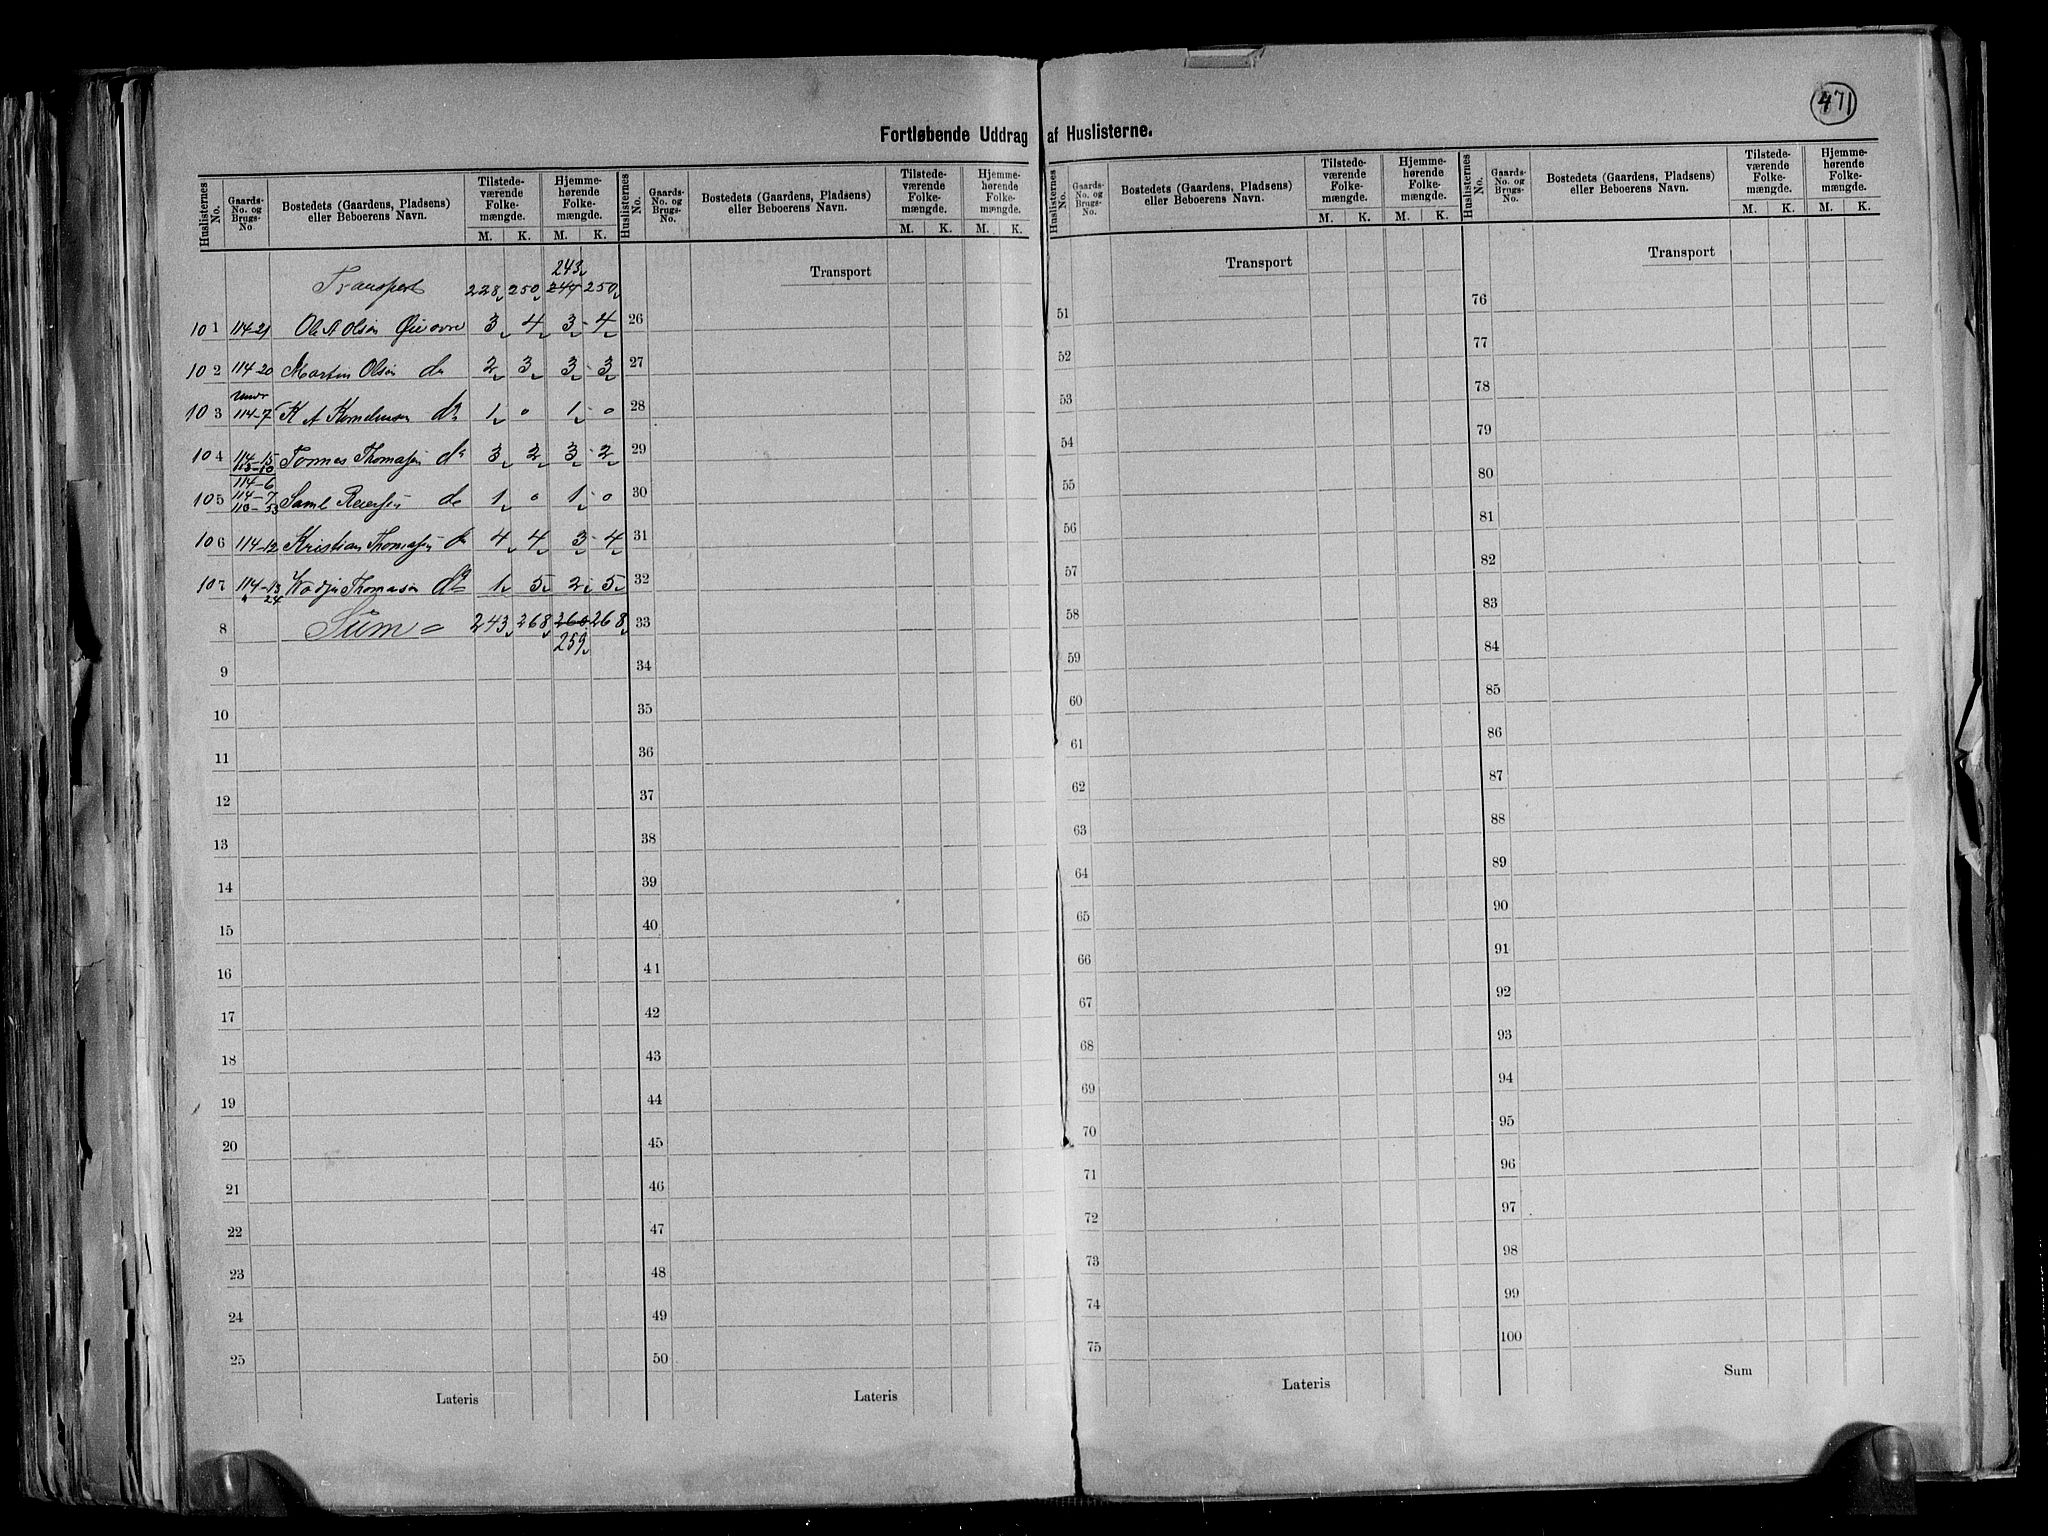 471
Fortløbende Uddrag af Huslisterne.
Huslisternes No. Gaards-No. og Brugs-No Bostedets (Gaardens, Pladsens) eller Beboerens Navn. Tilstede-værende Folke-mængde. M. K. Hjemme-hørende Folke-mængde. M. K.
Huslisternes No. Gaards-No. og Brugs-No. Bostedets (Gaardens, Pladsens) eller Beboerens Navn. Tilstede-værende Folke-mængde. M. K. Hjemme-hørende Folke-mængde. M. K.
Huslisternes No. Gaards-No. og Brugs-No. Bostedets (Gaardens, Pladsens) eller Beboerens Navn. Tilstede-værende Folke-mængde. M. K. Hjemme-hørende Folke-mængde. M. K.
Huslisternes No. Gaards-No. og Brugs-No. Bostedets (Gaardens, Pladsens) eller Beboerens Navn. Tilstede-værende Folke-mængde. M. K. Hjemme-hørende Folke-mængde. M. K.
243
Transport 228 250 244 250
101 114-21 Ole A Olsen Øie øvre 3 4 3 - 4
102 114-20 Martin Olsen do 2 3 3 - 3
103 under 114-7 K A do 1 0 1 - 0
104 114-15 Tønnes Thomassen do 3 2 3 - 2
105 114-6 114-7 110-53 Saml Reiersen do 1 0 1 - 0
106 114-12 Kristian Thomassen do 4 4 3 - 4
107 114-13 " 24 Thomasen do 1 5 2 5
8 Sum = 243 268 260 268
259
9
10
11
12
13
14
15
16
17
18
19
20
21
22
23
24
25
Lateris
Transport
26
27
28
29
30
31
32
33
34
35
36
37
38
39
40
41
42
43
44
45
46
47
48
49
50
Lateris
Transport
51
52
53
54
55
56
57
58
59
60
61
62
63
64
65
66
67
68
69
70
71
72
73
74
75
Lateris
Transport
76
77
78
79
80
81
82
83
84
85
86
87
88
89
90
91
92
93
94
95
96
97
98
99
100
Sum